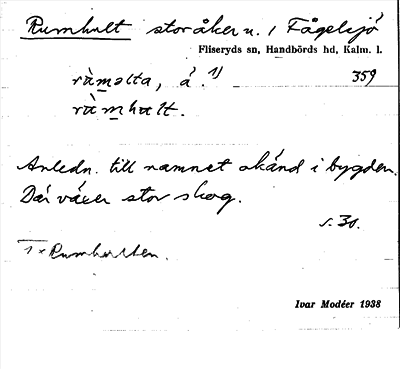 Rumhult storåker u. / Fågelsjö
Fliseryds sn, Handbörds hd, Kalm. l.
ràmalta, á.¹⁾ 359
ràmhalt.
Anledn. till namnet okänd i bygden.
Där växer stor skog.
s. 30.
1 × Rumhulten.
Ivar Modéer 1938